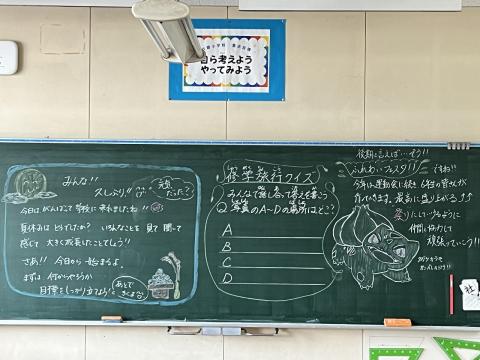 自ら考えよう
やってみよう
みんな!!
久しぶり!!
元気
だった?
今日はがんばって学校に来れましたね!!
夏休みはどうでしたか? いろんなことを見て聞いて
感じて大きく成長したことでしょう!!
さあ!! 今日から始まるよ。
まずは何からやろうか
目標をしっかり立てよう!
あとで
きくよ
修学旅行クイズ
みんなで話し合って答えを書こう
Q 写真のA~Dの場所はどこ?
A
B
C
D
後期と言えば…そう!!
ふれあいフェスタ!!
ですね!!
今年は運動会に続き6年の皆さんが
最高に盛り上がる
仲間と協力して
頑張っていこう!!
社